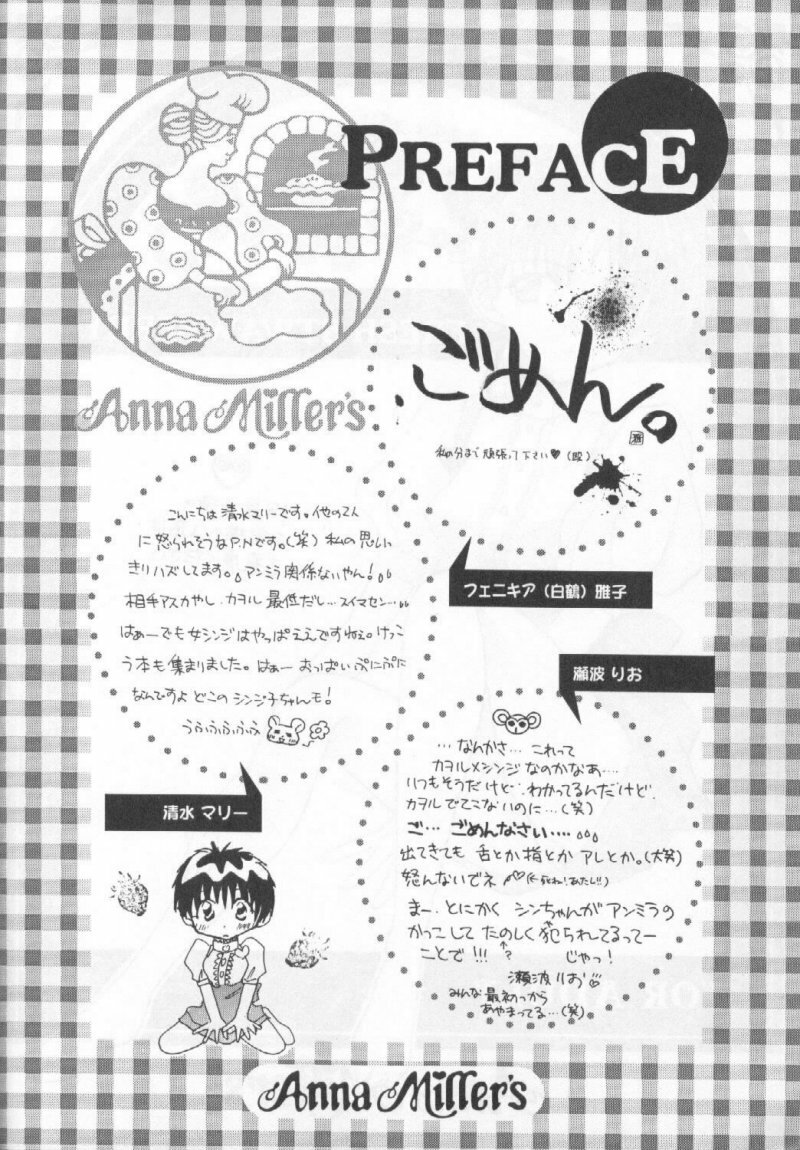 PREFACE
Anna Miller's
ごめん。
雅
私の分まで頑張って下さい♥(殴)
フェニキア(白鶴)雅子
こんにちは清水マリーです。他の2人
に怒られそうなP.Nです。(笑) 私の思い
きりハズしてます。アンミラ関係ないやん!
相手アスカやし、カヲル最低だし…スイマセン…
はぁーでも女シンジはやっぱええですねぇ。けっこ
う本も集まりました。はぁー おっぱいぷにぷに
なんですよ どこのシンジ子ちゃんも!
うふふふふふ
清水 マリー
瀬波 りお
…なんかさ… これって
カヲル×シンジなのかなぁ…
いつもそうだけど、わかってるんだけど、
カヲルでてこないのに…(笑)
ご… ごめんなさい….
出てきても 舌とか指とか アレとか。(大笑)
怒んないでネ♡(←死ね!あたし!!)
まー、とにかく シンちゃんがアンミラの
かっこして たのしく犯られてるってー
ことで!!! ↑? じゃっ!
瀬波りお♡
みんな最初っから
あやまってる…(笑)
Anna Miller's